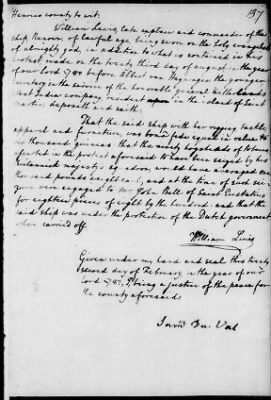 137
Henrico county to wit.
William Lewis, late captain and commander of the
ship Renown of lawful age being sworn on the holy evangelists
of almighty god, in addition to what is contained in his
protest made on the twenty third day of august in the year
of our lord 1780 before Albert van the younger
secretary in the service of the honorable general Netherlands
West India company resident upon in the island of Saint
Martin deposeth and saith
That the said ship with her rigging tackle
apparel and furniture, was bona fide equal in value to
thousand guineas that the ninety hogsheads of tobacco
specified in the protest aforesaid to have been seized by his
Britannick majesty's sq. would have averaged one
thousand pounds weight each, and at the time of such sei-
zure were engaged to Mr John Ball of Saint Eustatius
for eighteen pieces of eight by the hundred: and that the
said ship was under the protection of the Dutch government
when carried off.
William Lewis
Given under my hand and seal this twenty
second day of February in the year of our
lord 1781, I being a justice of the peace for
the county aforesaid.
David Du. Val